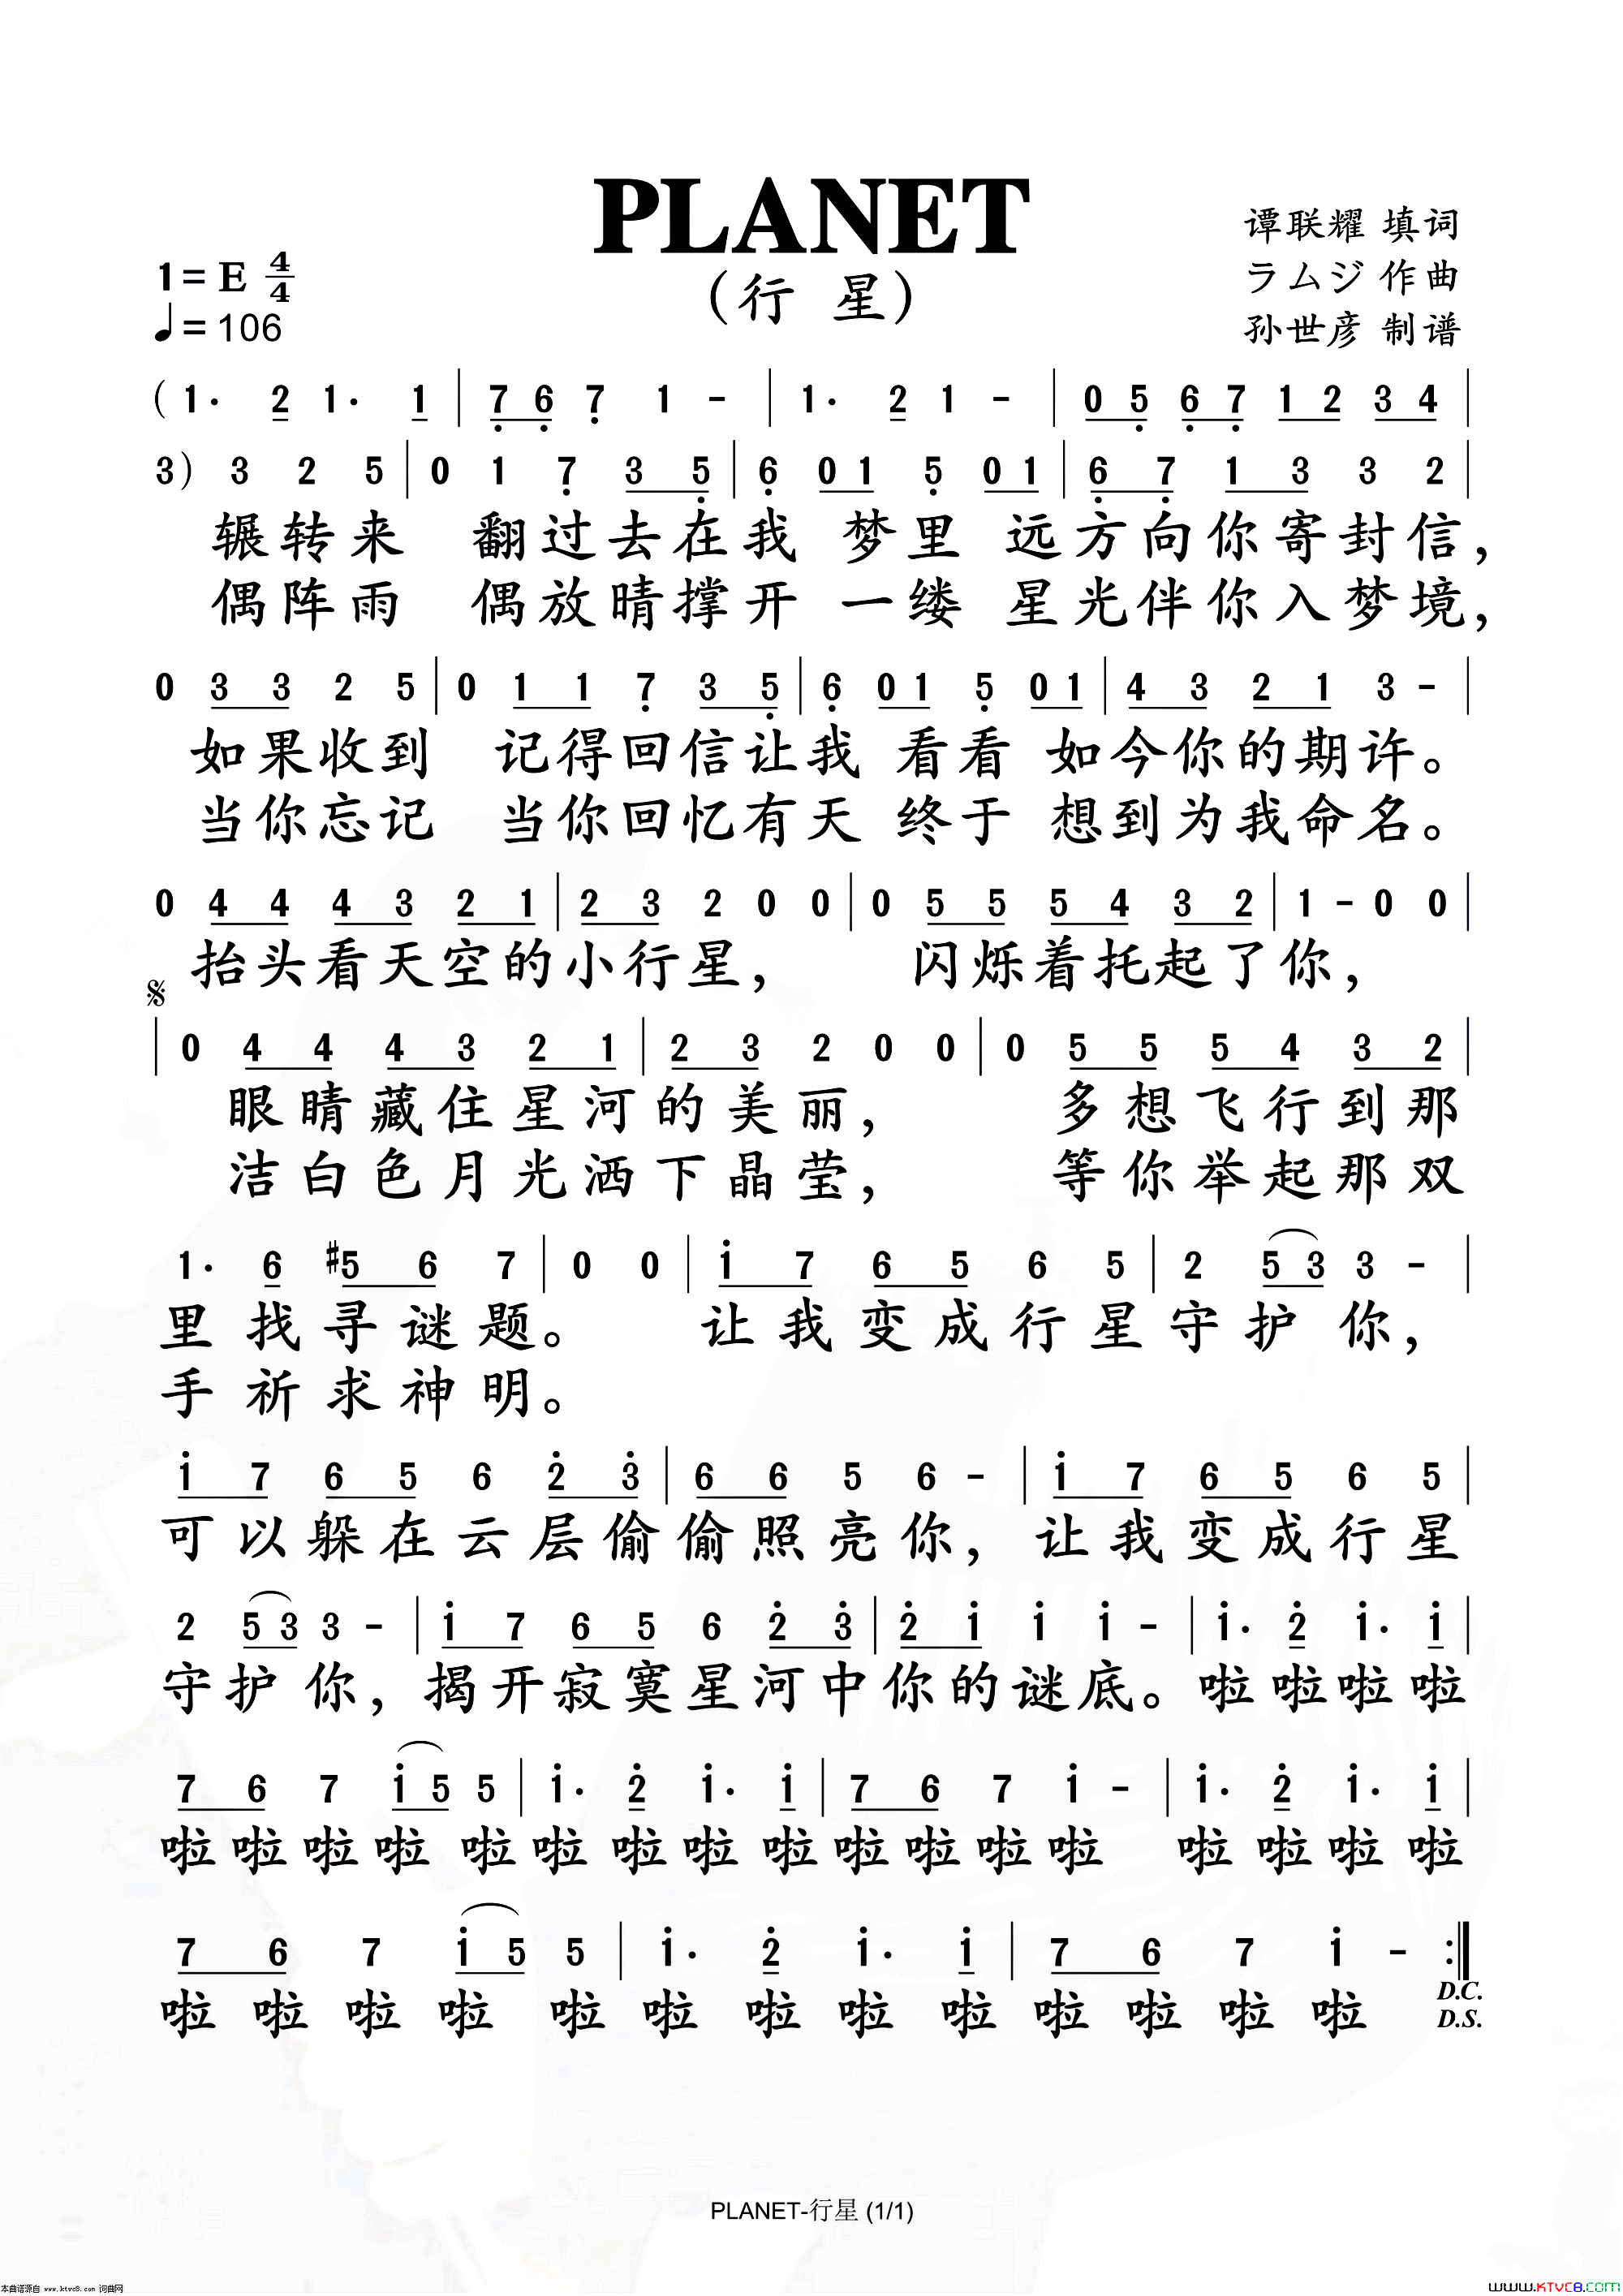 PLANET
(行 星)
1=E 4/4
♩=106
谭联耀 填词
ラムジ 作曲
孙世彦 制谱
( 1· 2 1· 1 | 7 6 7 1 - | 1· 2 1 - | 0 5 6 7 1 2 3 4 |
3) 3 2 5 | 0 1 7 3 5 | 6 0 1 5 0 1 | 6 7 1 3 3 2 |
辗转来 翻过去在我 梦里 远方向你寄封信,
偶阵雨 偶放晴撑开 一缕 星光伴你入梦境,
0 3 3 2 5 | 0 1 1 7 3 5 | 6 0 1 5 0 1 | 4 3 2 1 3 - |
如果收到 记得回信让我 看看 如今你的期许。
当你忘记 当你回忆有天 终于 想到为我命名。
0 4 4 4 3 2 1 | 2 3 2 0 0 | 0 5 5 5 4 3 2 | 1 - 0 0 |
抬头看天空的小行星, 闪烁着托起了你,
𝄋
| 0 4 4 4 3 2 1 | 2 3 2 0 0 | 0 5 5 5 4 3 2 |
眼睛藏住星河的美丽, 多想飞行到那
洁白色月光洒下晶莹, 等你举起那双
1· 6 #5 6 7 | 0 0 | i 7 6 5 6 5 | 2 5 3 3 - |
里找寻谜题。 让我变成行星守护你,
手祈求神明。
i 7 6 5 6 2̇ 3̇ | 6 6 5 6 - | i 7 6 5 6 5 |
可以躲在云层偷偷照亮你, 让我变成行星
2 5 3 3 - | i 7 6 5 6 2̇ 3̇ | 2̇ i i i - | i· 2̇ i· i |
守护你, 揭开寂寞星河中你的谜底。啦啦啦啦
7 6 7 i 5 5 | i· 2̇ i· i | 7 6 7 i - | i· 2̇ i· i |
啦啦啦啦 啦啦啦啦啦啦啦啦啦 啦啦啦啦
7 6 7 i 5 5 | i· 2̇ i· i | 7 6 7 i - :|
啦啦啦啦 啦啦啦啦啦啦啦啦啦
D.C.
D.S.
PLANET-行星 (1/1)
本曲谱源自 www.ktvc8.com 词曲网
www.KTVC8.com